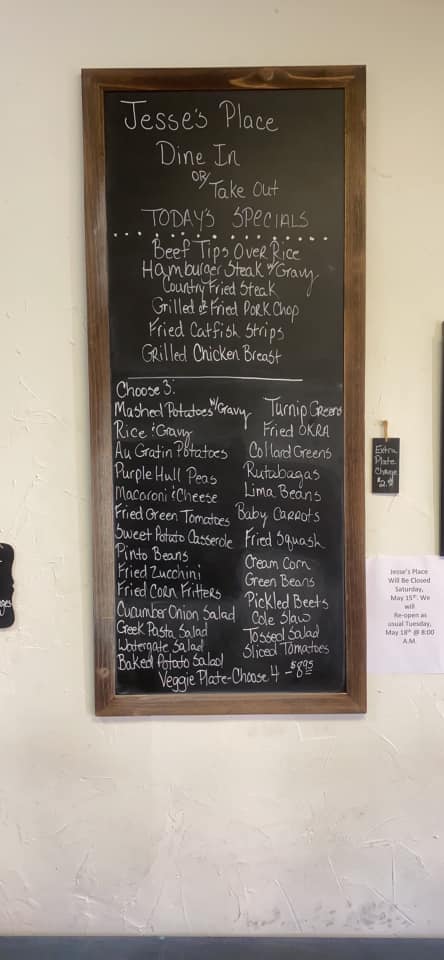 Jesse's Place
Dine In
OR/
Take Out
TODAY'S SPECIALS
Beef Tips Over Rice
Hamburger Steak w/Gravy
Country Fried Steak
Grilled or Fried Pork Chop
Fried Catfish Strips
Grilled Chicken Breast
Choose 3:
Mashed Potatoes w/Gravy
Rice & Gravy
Au Gratin Potatoes
Purple Hull Peas
Macaroni & Cheese
Fried Green Tomatoes
Sweet Potato Casserole
Pinto Beans
Fried Zucchini
Fried Corn Fritters
Cucumber Onion Salad
Greek Pasta Salad
Watergate Salad
Baked Potato Salad
Turnip Greens
Fried OKRA
Collard Greens
Rutabagas
Lima Beans
Baby Carrots
Fried Squash
Cream Corn
Green Beans
Pickled Beets
Cole Slaw
Tossed Salad
Sliced Tomatoes
Veggie Plate-Choose 4 - $8.95
Extra
Plate
Charge
Jesse's Place
Will Be Closed
Saturday,
May 15th. We
will
Re-open as
usual Tuesday,
May 18th @ 8:00
A.M.